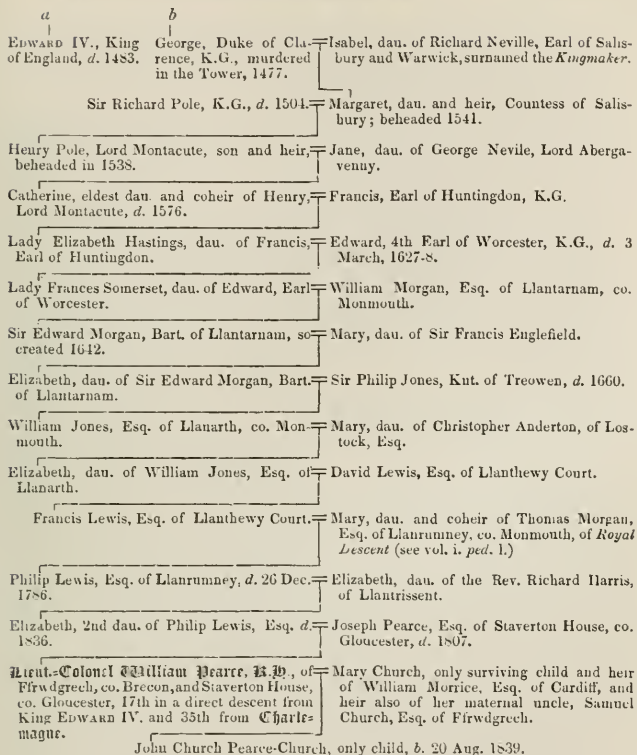 a b
EDWARD IV., King
of England, d. 1483.
George, Duke of Cla-
rence, K.G., murdered
in the Tower, 1477.
Isabel, dau. of Richard Neville, Earl of Salis-
bury and Warwick, surnamed the Kingmaker.
Sir Richard Pole, K.G., d. 1504.
Margaret, dau. and heir, Countess of Salis-
bury; beheaded 1541.
Henry Pole, Lord Montacute, son and heir,
beheaded in 1538.
Jane, dau. of George Nevile, Lord Aberga-
venny.
Catherine, eldest dau. and coheir of Henry,
Lord Montacute, d. 1576.
Francis, Earl of Huntingdon, K.G.
Lady Elizabeth Hastings, dau. of Francis,
Earl of Huntingdon.
Edward, 4th Earl of Worcester, K.G., d. 3
March, 1627-8.
Lady Frances Somerset, dau. of Edward, Earl
of Worcester.
William Morgan, Esq. of Llantarnam, co.
Monmouth.
Sir Edward Morgan, Bart. of Llantarnam, so
created 1642.
Mary, dau. of Sir Francis Englefield.
Elizabeth, dau. of Sir Edward Morgan, Bart.
of Llantarnam.
Sir Philip Jones, Knt. of Treowen, d. 1660.
William Jones, Esq. of Llanarth, co. Mon-
mouth.
Mary, dau. of Christopher Anderton, of Los-
tock, Esq.
Elizabeth, dau. of William Jones, Esq. of
Llanarth.
David Lewis, Esq. of Llanthewy Court.
Francis Lewis, Esq. of Llanthewy Court.
Mary, dau. and coheir of Thomas Morgan,
Esq. of Llanrumney, co. Monmouth, of Royal
Descent (see vol. i. ped. l.)
Philip Lewis, Esq. of Llanrumney, d. 26 Dec.
1786.
Elizabeth, dau. of the Rev. Richard Harris,
of Llantrissent.
Elizabeth, 2nd dau. of Philip Lewis, Esq. d.
1836.
Joseph Pearce, Esq. of Staverton House, co.
Gloucester, d. 1807.
Lieut.-Colonel William Pearce, K.H., of
Ffrwdgrech, co. Brecon, and Staverton House,
co. Gloucester, 17th in a direct descent from
King EDWARD IV. and 35th from Charle-
magne.
Mary Church, only surviving child and heir
of William Morrice, Esq. of Cardiff, and
heir also of her maternal uncle, Samuel
Church, Esq. of Ffrwdgrech.
John Church Pearce-Church, only child, b. 20 Aug. 1839.